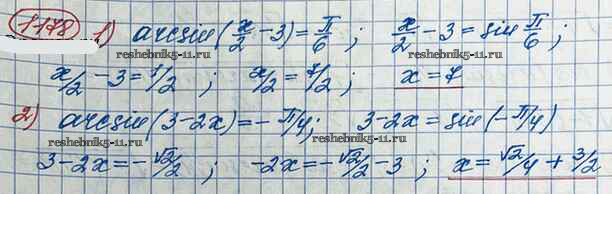 1178 1) arcsin(x/2 - 3) = π/6 ; x/2 - 3 = sin π/6 ;
reshebnik5-11.ru reshebnik5-11.ru
x/2 - 3 = 1/2 ; x/2 = 7/2 ; x = 7
2) arcsin(3-2x) = - π/4 ; 3-2x = sin(-π/4)
reshebnik5-11.ru reshebnik5-11.ru
3-2x = -√2/2 ; -2x = -√2/2 - 3 ; x = √2/4 + 3/2